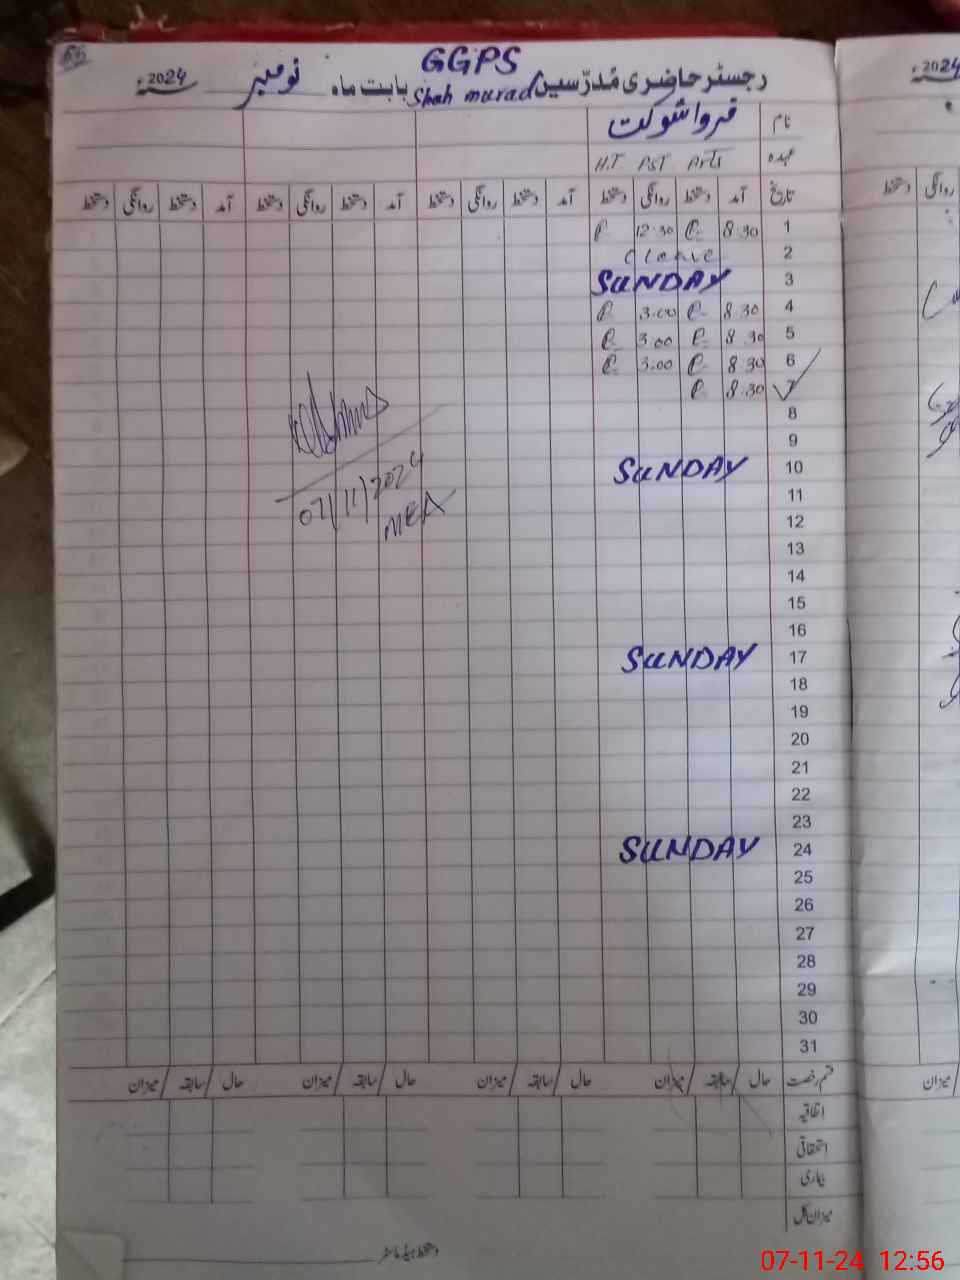 66
GGPS
رجسٹر حاضری مُدرّسین Shah murad بابت ماہ نومبر 2024ء
نام فروا شوکت
عہدہ H.T PST
تاریخ آمد دستخط روانگی دستخط آمد دستخط روانگی دستخط آمد دستخط روانگی دستخط آمد دستخط روانگی دستخط
1 8.30 12.30
2 C leave
3 SUNDAY
4 8.30 3.00
5 8.30 3.00
6 8.30 3.00
7 8.30
8
9
10 SUNDAY
07/11/2024
MEA
11
12
13
14
15
16
17 SUNDAY
18
19
20
21
22
23
24 SUNDAY
25
26
27
28
29
30
31
قسم رخصت حال / سابقہ / میزان حال / سابقہ / میزان حال / سابقہ / میزان حال / سابقہ / میزان
اتفاقیہ
استحقاقی
بیماری
میزان کل
دستخط ہیڈ ماسٹر
2024
روانگی دستخط
میزان
07-11-24 12:56